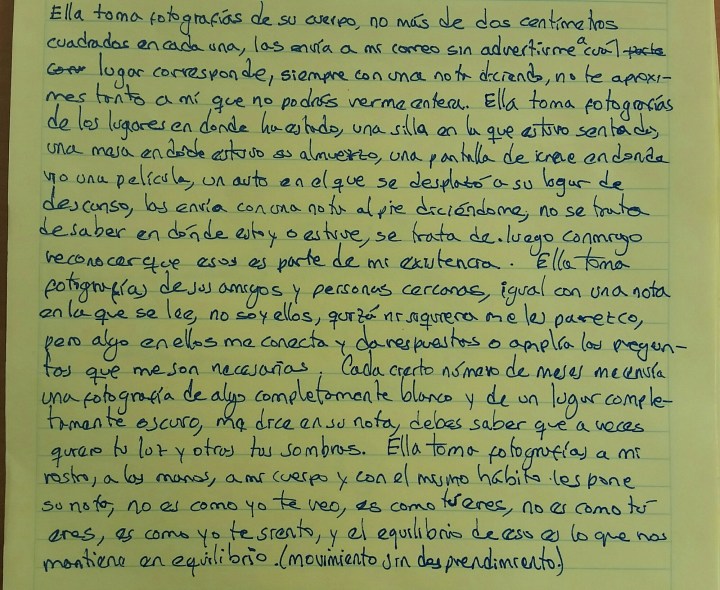 Ella toma fotografías de su cuerpo, no más de dos centímetros
cuadrados en cada una, las envía a mi correo sin advertirme a cuál
lugar corresponde, siempre con una nota diciendo, no te aproxi-
mes tanto a mí que no podrás verme entera. Ella toma fotografías
de los lugares en donde ha estado, una silla en la que estuvo sentada,
una mesa en donde estuvo almuerzo, una pantalla de cine en donde
vio una película, un auto en el que se desplazó a su lugar de
descanso, las envía con una nota al pie diciéndome, no se trata
de saber en dónde estoy o estuve, se trata de luego conmigo
reconocer que esos es parte de mi existencia. Ella toma
fotografías de sus amigos y personas cercanas, igual con una nota
en la que se lee, no soy ellos, quizá ni siquiera me les parezco,
pero algo en ellos me conecta y da respuestas o amplía las pregun-
tas que me son necesarias. Cada cierto número de meses me envía
una fotografía de algo completamente blanco y de un lugar comple-
tamente oscuro, me dice en su nota, debes saber que a veces
quiero tu luz y otras tus sombras. Ella toma fotografías a mi
rostro, a las manos, a mi cuerpo y con el mismo hábito les pone
su nota, no es como yo te veo, es como tú eres, no es como tú
eres, es como yo te siento, y el equilibrio de eso es lo que nos
mantiene en equilibrio. (movimiento sin desprendimiento.)